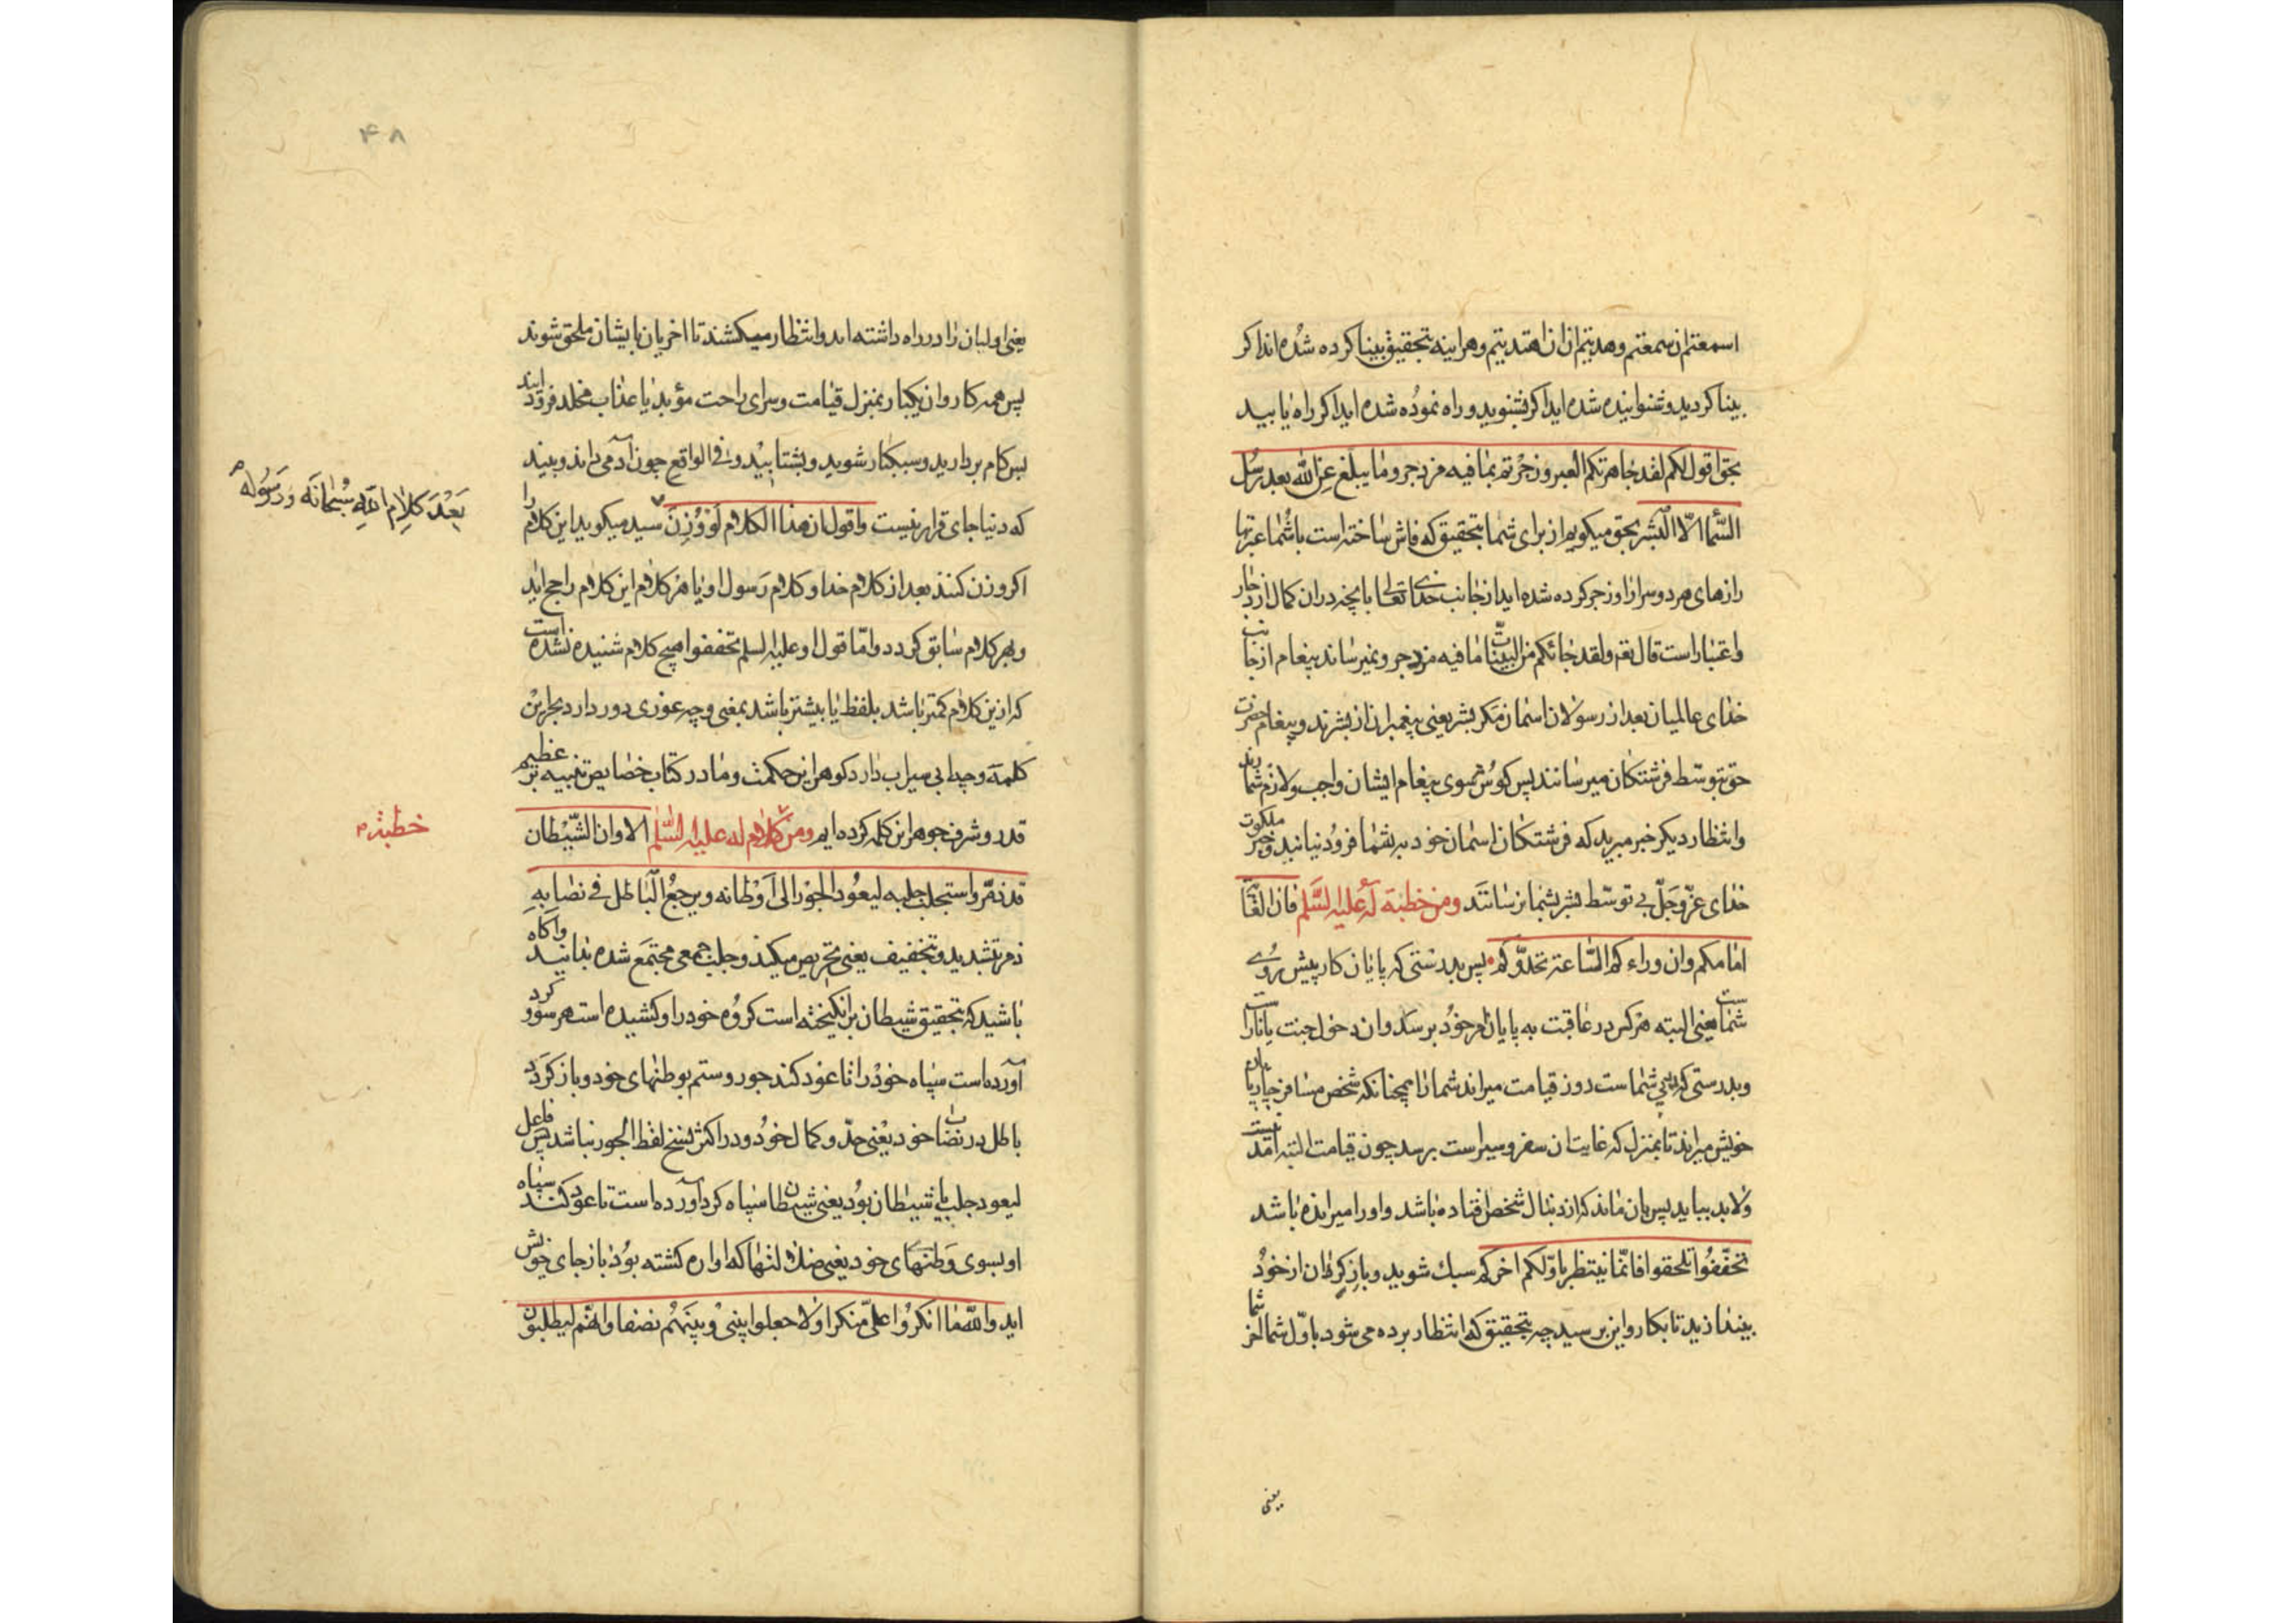 اسمعتم ان سمعتم وهدیتم ان اهتدیتم وهراینه بتحقیق بینا کرده شده اند اکر
بینا کردید وشنوانیده شده اید اکر بشنوید و راه نموده شده اید اکر راه یابید
بحق اقول لکم لقد جاهرتکم العبر وزجرتم بما فیه مزدجر وما یبلغ عن الله بعد رسل
السماء الا البشر بحق میکویم از برای شما بتحقیق که فاش ساخته است باشما عبرتها
رازهای هر دو سرا را و زجر کرده شده اید از جانب خدای تعالی بانچه دران کمال ازدجار
واعتبار است قال تعه ولقد جائکم من البینات ما فیه مزدجر و نمیرساند پیغام از جانب
خدای عالمیان بعد از رسولان اسمان مکر بشر یعنی پیغمبران از بشرند و پیغام حضرت
حق بتوسط فرشتکان میرسانند پس کوش بسوی پیغام ایشان واجب ولازم شما
وانتظار دیکر خبر مبرید که فرشتکان اسمان خود بر شما فرود نیایند و خبر ملکوت
خدای عز وجل بی توسط بشر بشما نرسانند ومن خطبة له علیه السلم فان الغایة
امامکم وان وراءکم الساعة تحدوکم پس بدرستی که پایان کار پیش روی
شماست یعنی البته هر کس در عاقبت به پایان امر خود برسد وان دخول جنت یا نار است
وبدرستی که پس شماست روز قیامت میراند شما را همچنانکه شخص مسافر چارپایان
خویش میراند تا بمنزل که غایت ان سفر و سیر است برسد چون قیامت البته امدنیست
ولابد بیاید پس بان ماند که از دنبال شخص افتاده باشد و او را میرانده باشد
تخففوا تلحقوا فانما ینتظر باولکم اخرکم سبک شوید و بار کران از خود
بیندازید تا بکاروان برسید چه بتحقیق که انتظار برده می شود باول شما اخر شما
یعنی
۴۸
یعنی اولیان را در راه داشته اند وانتظار میکشند تا اخریان بایشان ملحق شوند
پس همه کاروان یکبار بمنزل قیامت وسرای راحت مؤبد یا عذاب مخلد فرود ایند
پس کام بردارید وسبکبار شوید وبشتابید و فی الواقع چون آدمی داند وبیند
که دنیا جای قرار نیست واقول ان هذا الکلام لو وزن سید میکوید این کلام را
بعد کلام الله سبحانه ورسوله
اکر وزن کنند بعد از کلام خدا وکلام رسول او با هر کلام این کلام راجح اید
وبهر کلام سابق کردد واما قول او علیه السلم تخففوا هیچ کلام شنیده نشده است
که ازین کلام کمتر باشد بلفظ یا بیشتر باشد بمعنی وچه غوری دور دارد بحر این
کلمه وچه ابی سیراب دارد کوهر این حکمت وما در کتاب خصایص تنبیه بر عظیم
قدر وشرف جوهر این کلمه کرده ایم ومن کلام له علیه السلم الا وان الشیطان
خطبة
قد ذمر واستجلب جلبه لیعود الجور الی اوطانه ویرجع الباطل فی نصابه
ذمر بتشدید و تخفیف یعنی تحریص میکند وجلب جمعی مجتمع شده بدانید واکاه
باشید که بتحقیق شیطان برانکیخته است کروه خود را وکشیده است هر سو و کرد
آورده است سپاه خود را تا عود کند جور وستم بوطنهای خود وباز کردد
باطل در نصاب خود یعنی حد وکمال خود و در اکثر نسخ لفظ الجور نباشد پس فاعل
لیعود جلب یا شیطان بود یعنی شیطان سپاه کرد آورده است تا عود کند سپاه
او بسوی وطنهای خود یعنی ضلالتها که اواره کشته بود باز جای خویش
اید والله ما انکروا علی منکرا ولا جعلوا بینی وبینهم نصفا وانهم لیطلبون